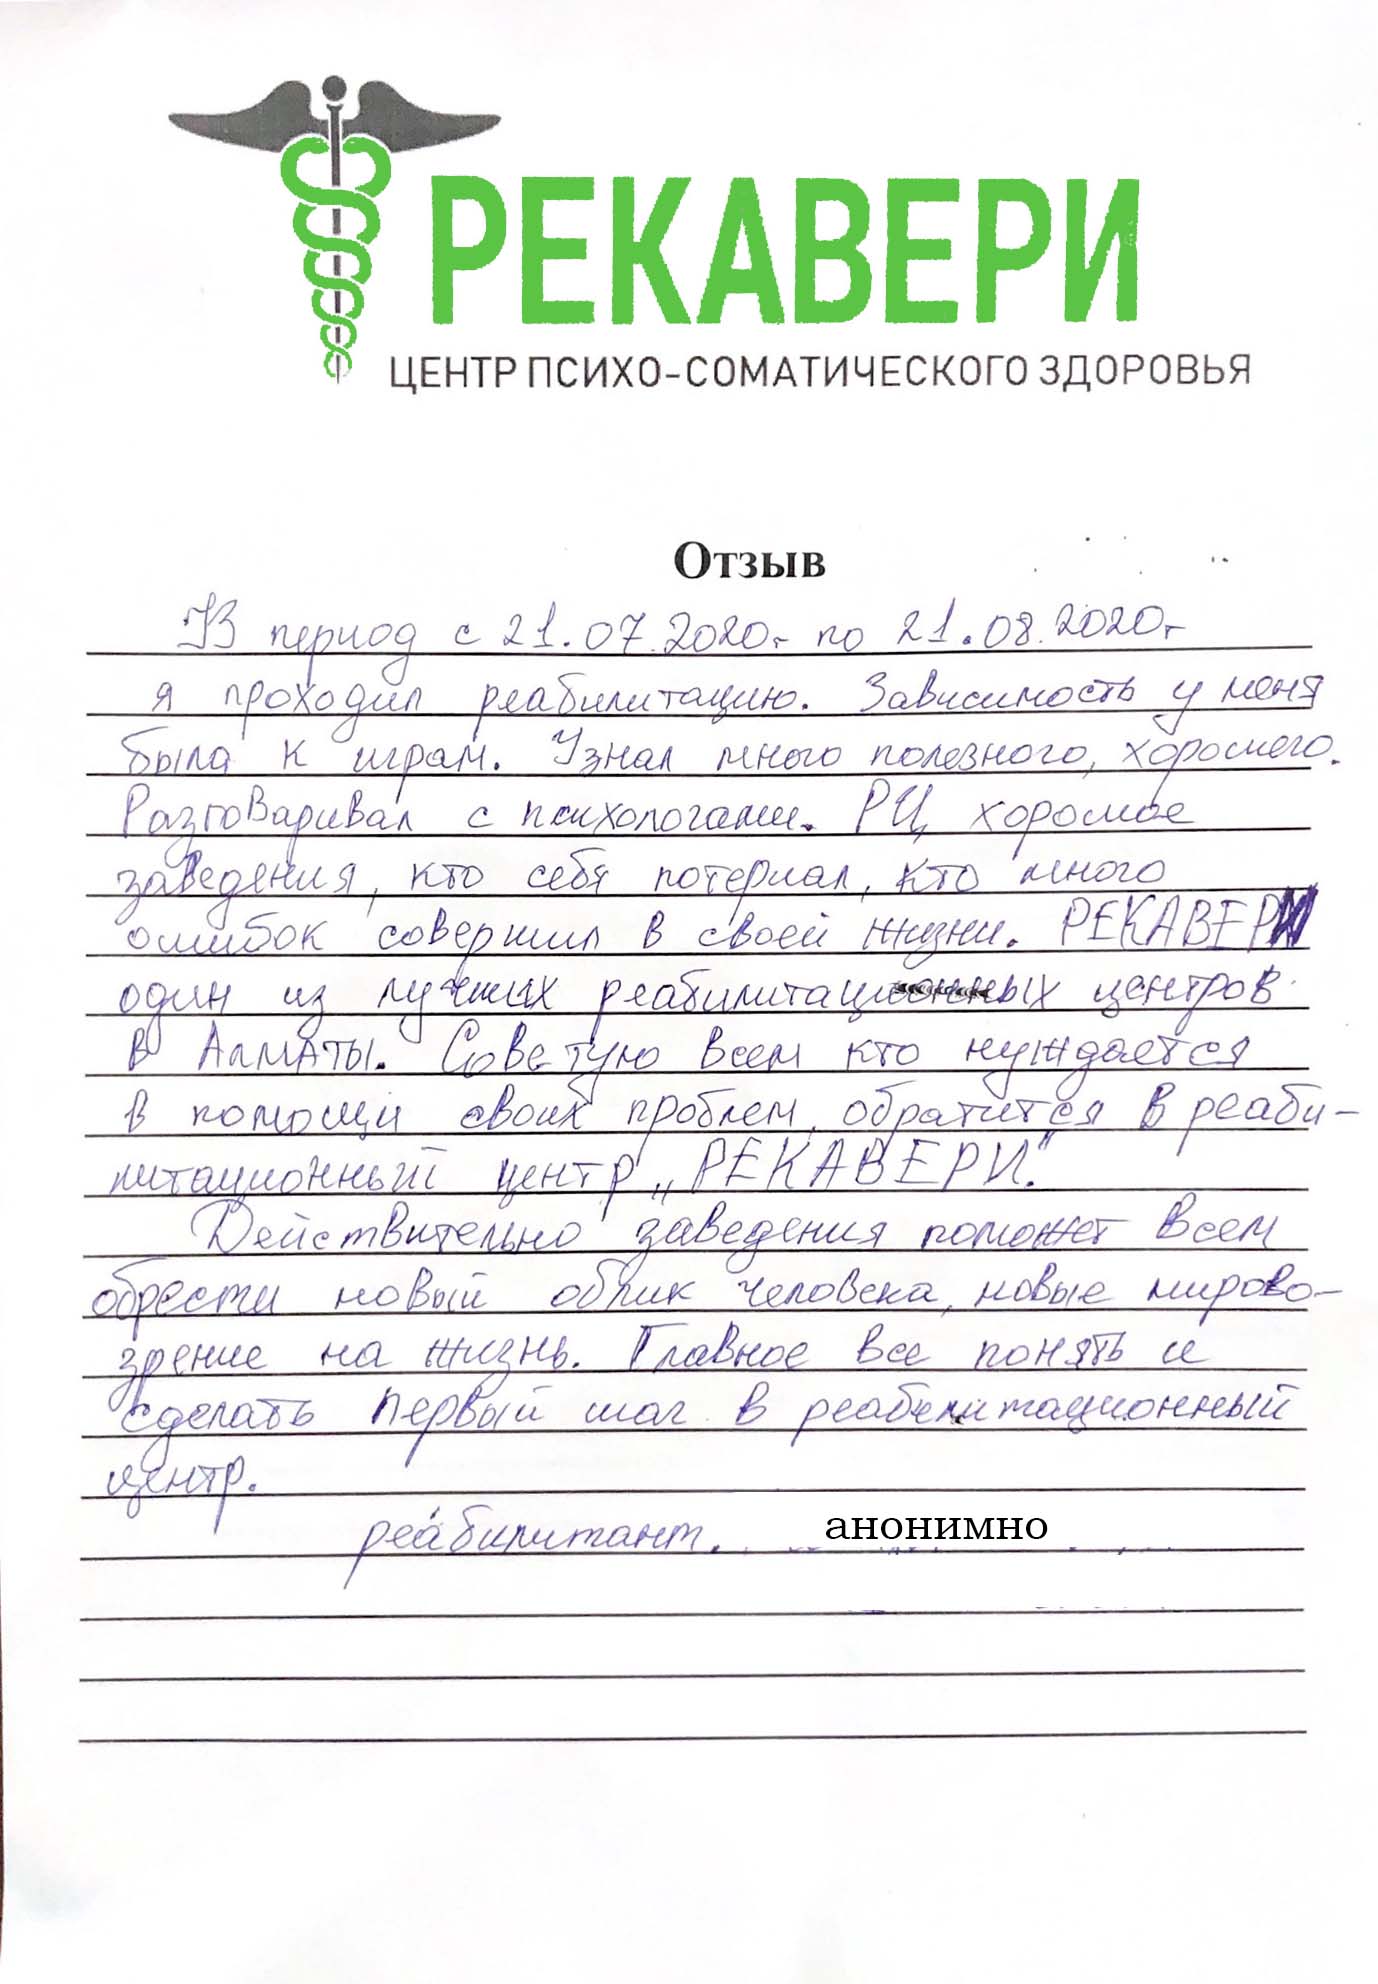 РЕКАВЕРИ
ЦЕНТР ПСИХО-СОМАТИЧЕСКОГО ЗДОРОВЬЯ
Отзыв
В период с 21.07.2020г по 21.08.2020г
я проходил реабилитацию. Зависимость у меня
была к играм. Узнал много полезного, хорошего.
Разговаривал с психологами. РЦ хорошое
заведения, кто себя потериал, кто много
ошибок совершил в своей жизни. РЕКАВЕРИ
один из лучших реабилитационных центров
в Алматы. Советую всем кто нуждается
в помощи своих проблем, обратится в реаби-
литационный центр „РЕКАВЕРИ."
Действительно заведения поможет всем
обрести новый облик человека, новые мирово-
зрение на жизнь. Главное все понять и
сделать первый шаг в реабилитационный
центр.
реабилитант. анонимно